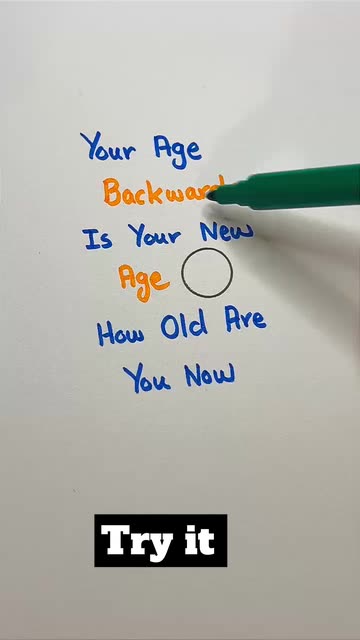 Your Age
Backward
Is Your New
Age
How Old Are
You Now
Try it